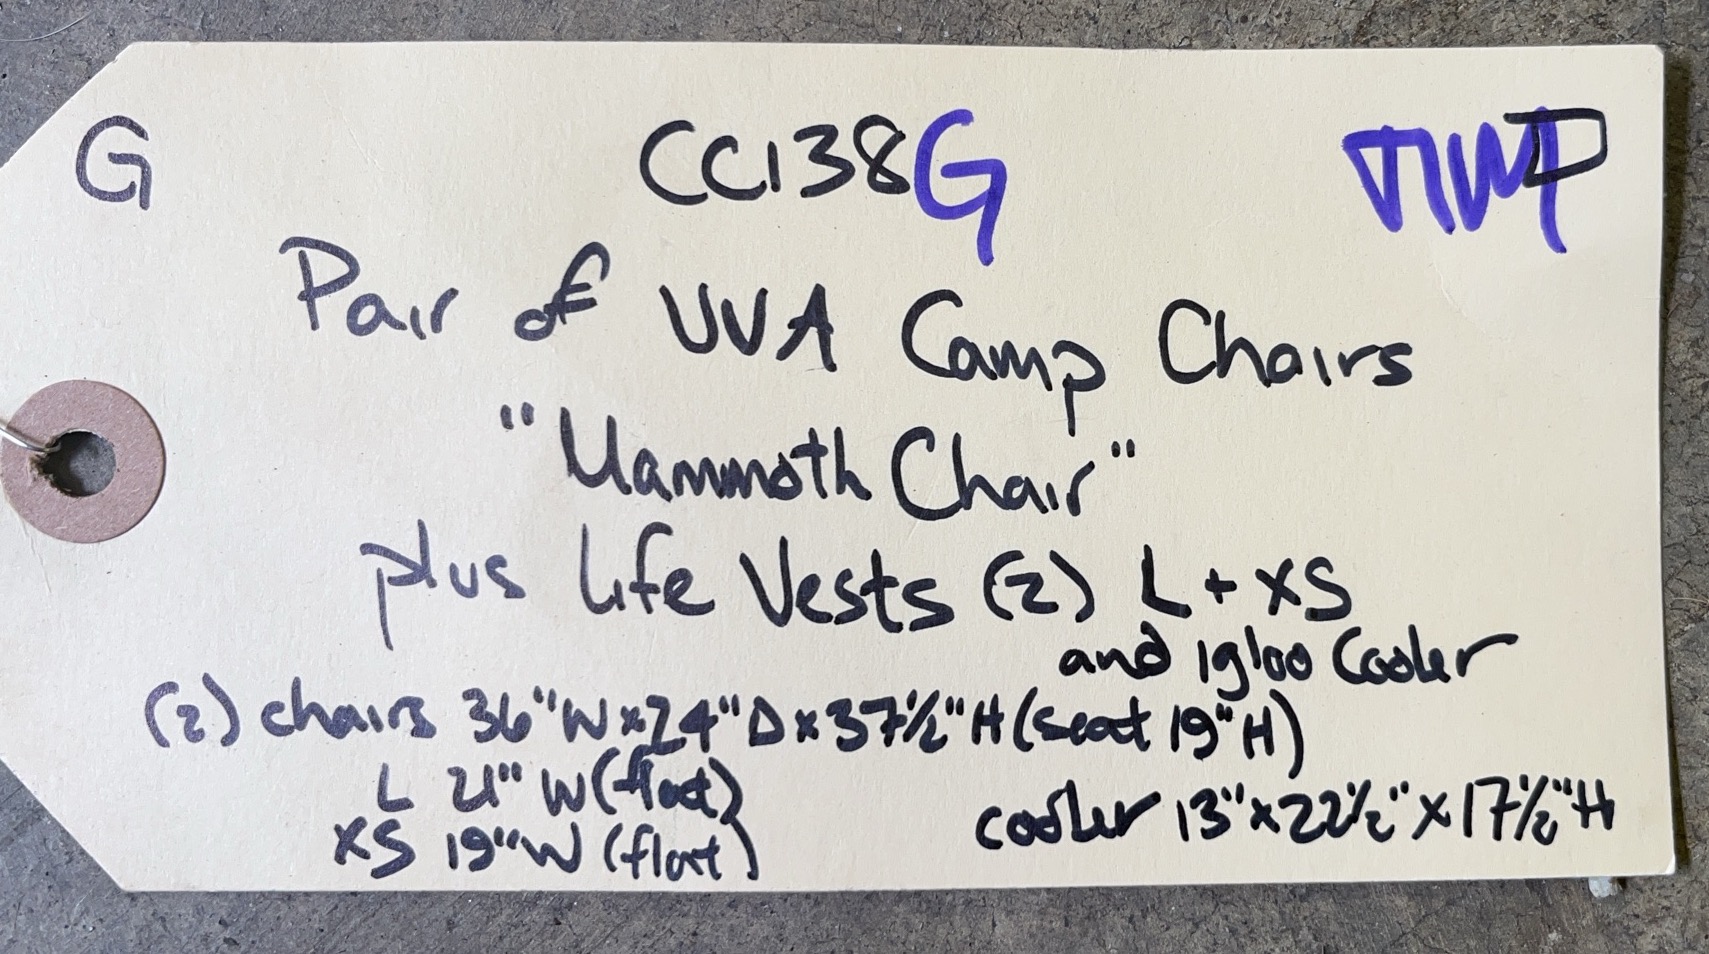 G CC138G
Pair of UVA Camp Chairs
"Mammoth Chair"
plus Life Vests (2) L + XS
and Igloo Cooler
(2) chairs 36"W x 24"D x 37½"H (seat 19"H)
L 21" W (flat)
XS 19" W (flat)
cooler 13" x 22½" x 17½"H